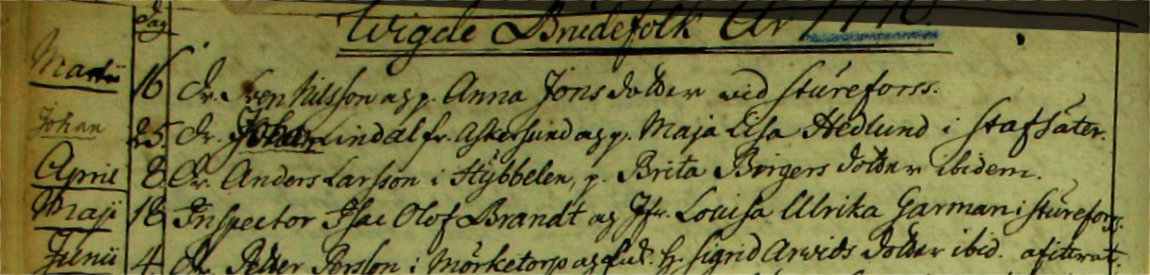 Dag Wigde Brudefolk År
Martii 16 Dr. Sven Nilsson og p. Anna Jons dotter vid Stureforss.
Johan 25. Dr. Johan Lindal fr. Askersund og p. Maja Lisa Hedlund i Stafsäter.
April 8. Dr. Anders Larsson i Stybbelen, p. Brita Börgers dotter ibidem.
Maji 18 Inspector Isac Olof Brandt og Jfr. Louisa Ulrika Garman i Stureforss.
Junii 4. Dr. Petter Persson i Mörketorp og Sigrid Arvids dotter ibid.